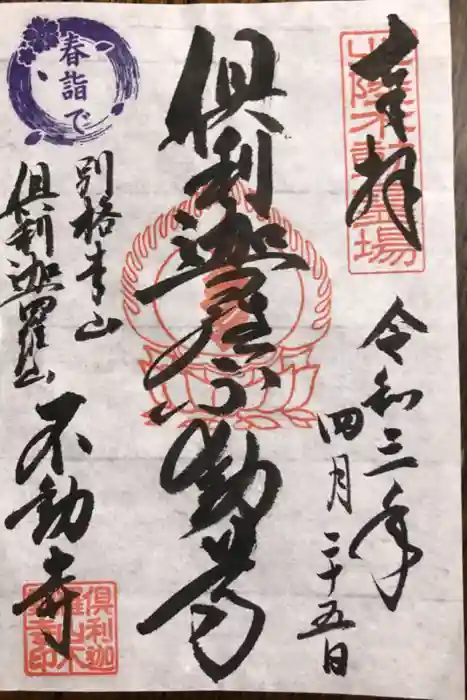 奉拝
北陸不動霊場
令和三年
四月二十五日
倶利迦羅不動尊
春詣で
別格本山
倶利迦羅山
不動寺
倶利迦
羅山不
動寺印